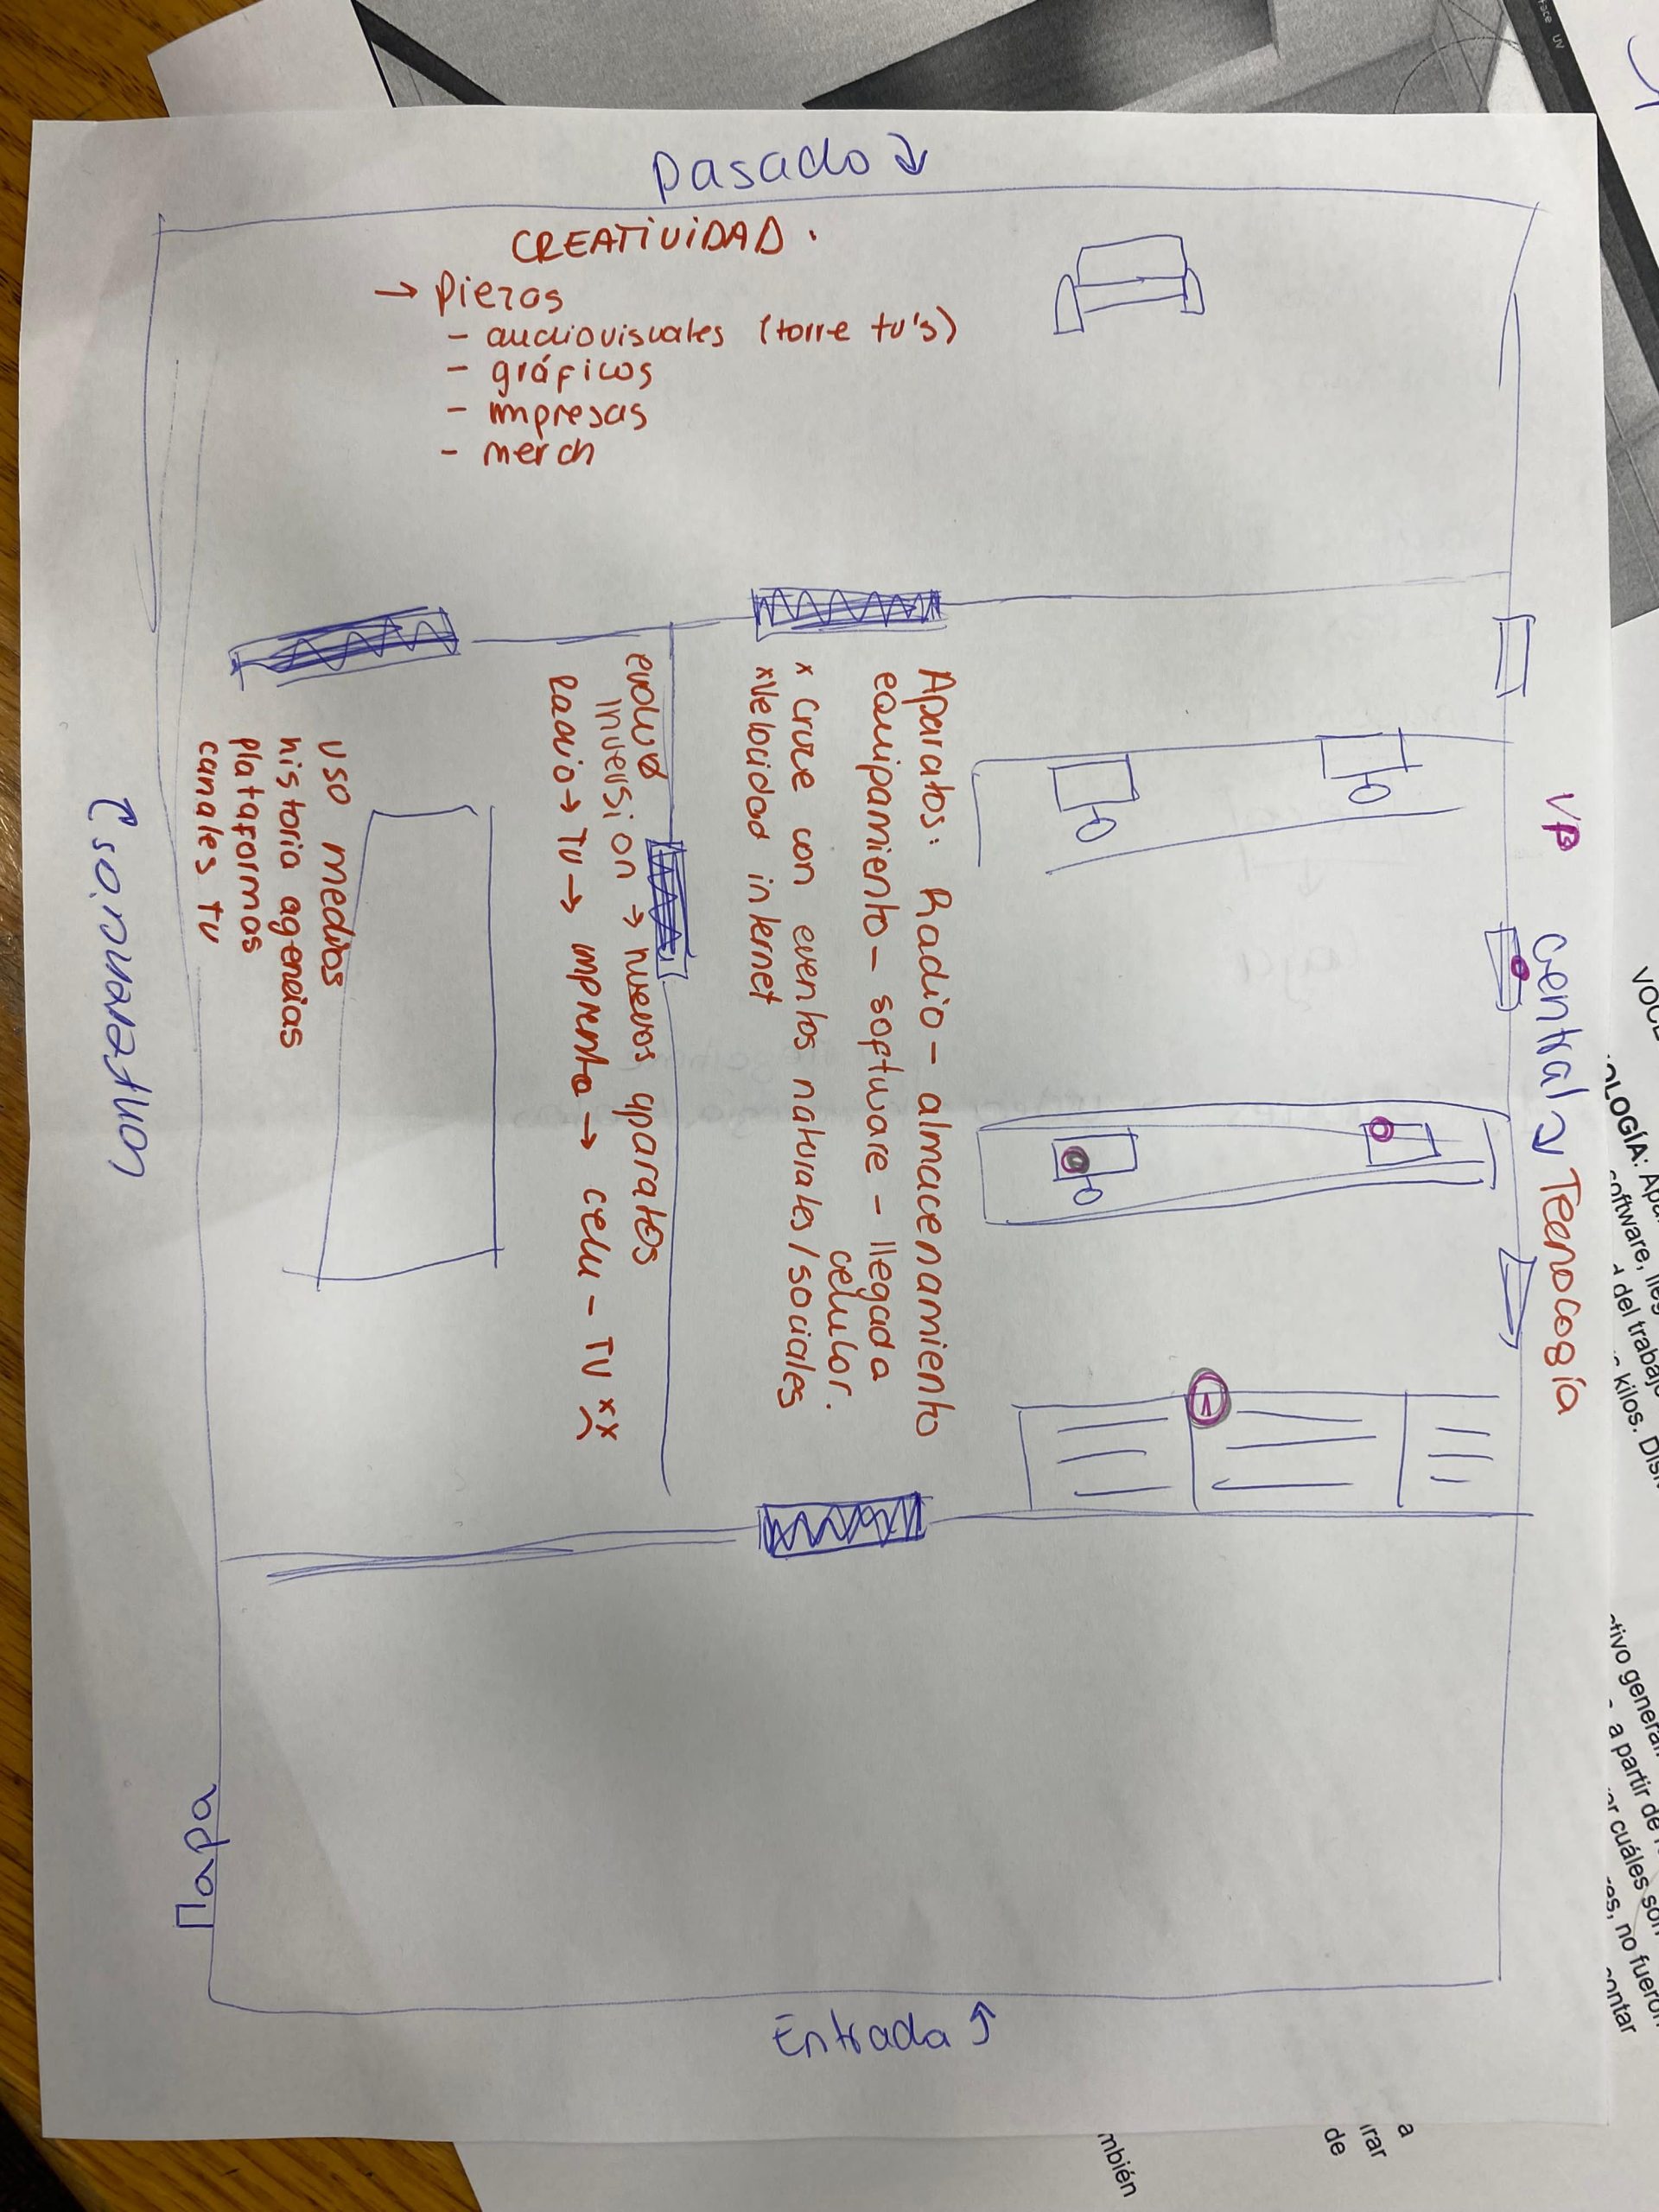 Pasado
CREATIVIDAD.
→ Piezas
- audiovisuales (torre tv's)
- gráficos
- impresas
- merch
VP
Central
Tecnología
Aparatos: Radio - almacenamiento
equipamiento - software - llegada
celular.
x cruce con eventos naturales/sociales
x velocidad internet
inversion → nuevos aparatos
Radio → TV → imprenta → celu - TV xx
uso medios
historia agencias
plataformas
canales TV
Mapa
Entrada
face UV
OLOGÍA: Apa
software, lle
del trabajo
kilos. Disn
tivo general
a partir de
cuáles son
no fueron
ontar
a
irar
de
mbién